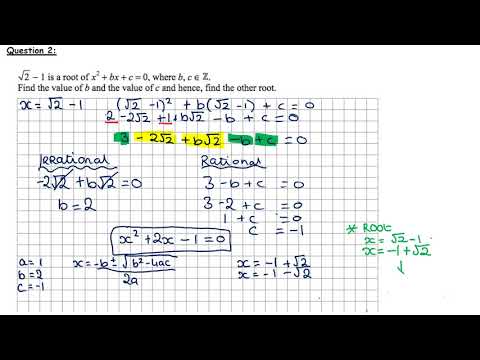 Question 2:
√2 − 1 is a root of x² + bx + c = 0, where b, c ∈ ℤ.
Find the value of b and the value of c and hence, find the other root.
x = √2 − 1 (√2 − 1)² + b(√2 − 1) + c = 0
2 − 2√2 + 1 + b√2 − b + c = 0
3 − 2√2 + b√2 − b + c = 0
Irrational Rational
−2√2 + b√2 = 0 3 − b + c = 0
b = 2 3 − 2 + c = 0
1 + c = 0
c = −1
x² + 2x − 1 = 0
* Root:
x = √2 − 1
x = −1 + √2
a = 1
b = 2
c = −1
x = −b ± √b² − 4ac
2a
x = −1 + √2
x = −1 − √2